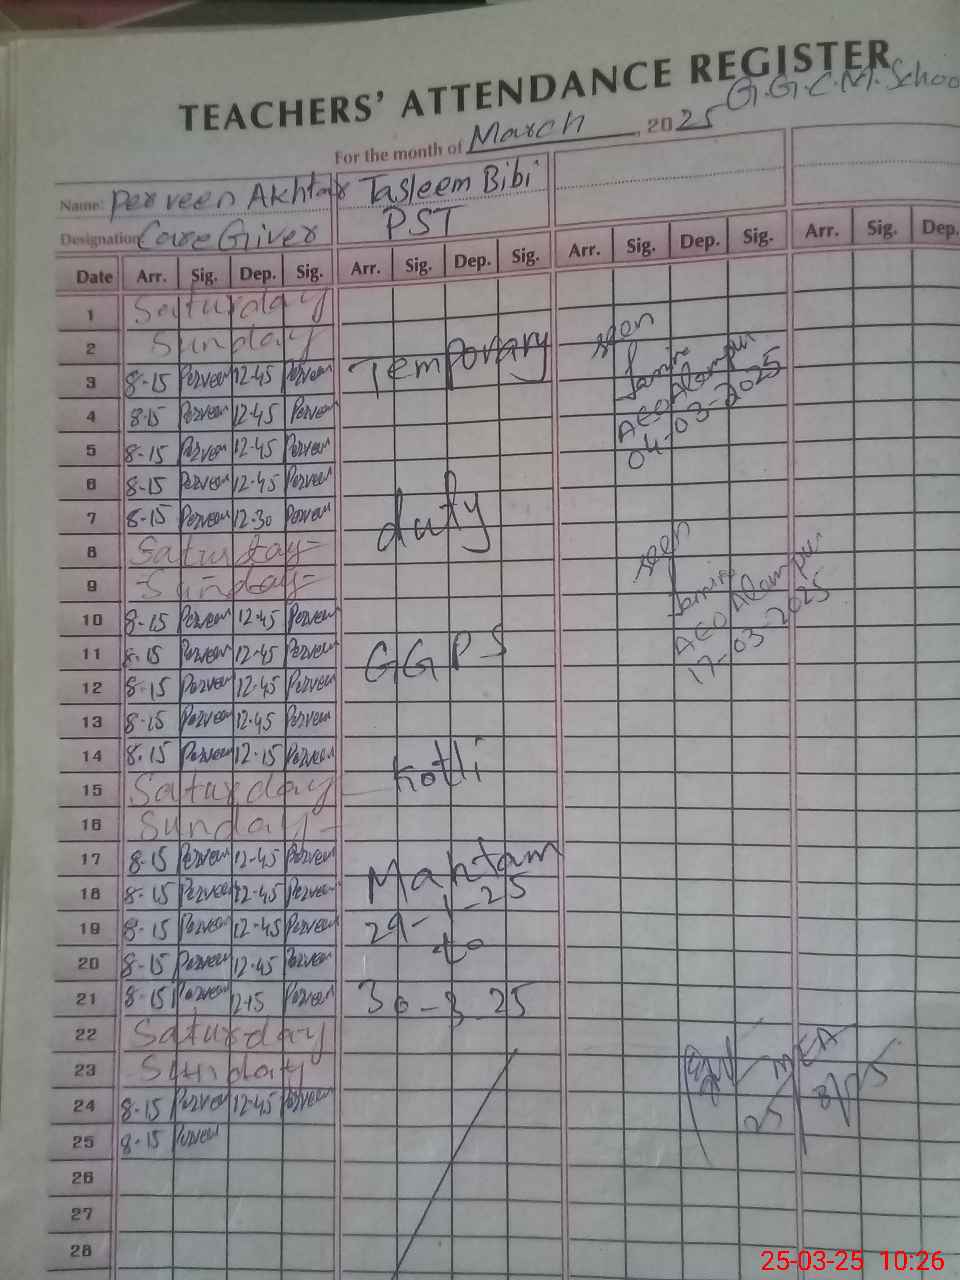 TEACHERS' ATTENDANCE REGISTER
G.G.C.M. School
For the month of March, 2025
Name: Perveen Akhtar Tasleem Bibi
Designation Care Giver PST
Date Arr. Sig. Dep. Sig. Arr. Sig. Dep. Sig. Arr. Sig. Dep. Sig. Arr. Sig. Dep.
1 Saturday
2 Sunday
3 8-15 Perveen 12-45 Perveen Temporary seen
4 8-15 Perveen 12-45 Perveen AEO Alampur
5 8-15 Perveen 12-45 Perveen 04-03-2025
6 8-15 Perveen 12-45 Perveen
7 8-15 Perveen 12-30 Perveen duty
8 Saturday
9 Sunday seen
10 8-15 Perveen 12-45 Perveen AEO Alampur
11 8-15 Perveen 12-45 Perveen GGPS 17-03-2025
12 8-15 Perveen 12-45 Perveen
13 8-15 Perveen 12-45 Perveen
14 8-15 Perveen 12-15 Perveen Kotli
15 Saturday
16 Sunday
17 8-15 Perveen 12-45 Perveen Mahtam
18 8-15 Perveen 12-45 Perveen 29-1-25
19 8-15 Perveen 12-45 Perveen to
20 8-15 Perveen 12-45 Perveen
21 8-15 Perveen 12-15 Perveen 30-3-25
22 Saturday
23 Sunday MEA
24 8-15 Perveen 12-45 Perveen 25/3/25
25 8-15 Perveen
26
27
28
25-03-25 10:26